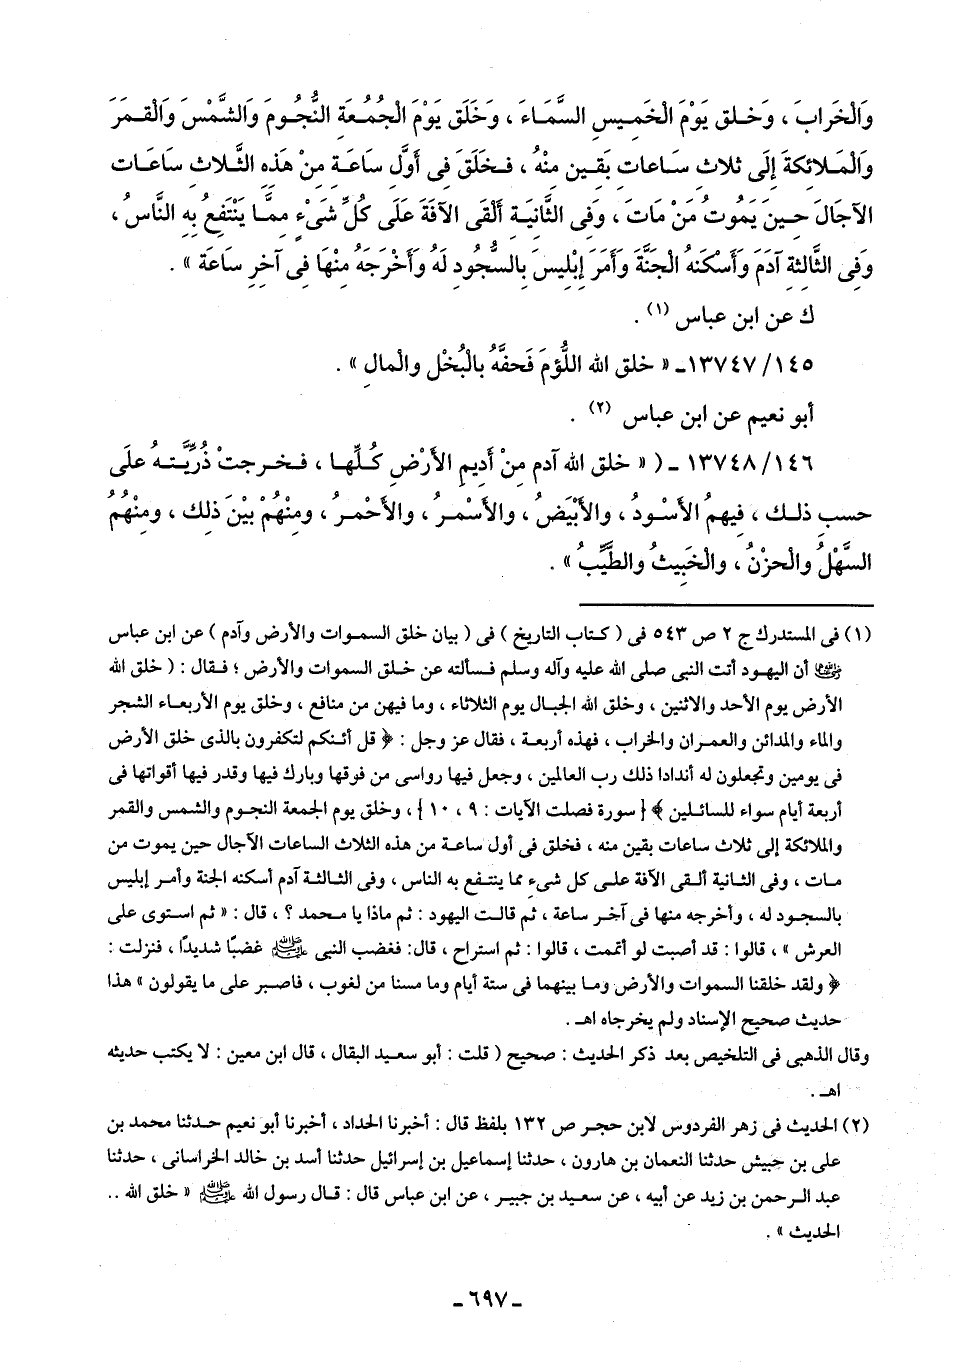 وَالْخَرابَ ، وَخلق يَوْمَ الْخَمِيسِ السَّمَاءَ ، وَخَلَق يَوْمَ الْجُمُعَةِ النُّجُومَ وَالشَّمْسَ وَالْقمَرَ
وَالْمَلائكَةَ إِلَى ثلاث سَاعَاتٍ بَقينَ منْهُ ، فَخَلَقَ فى أَوَّلِ سَاعَةٍ مِنْ هَذهِ الثَّلاث سَاعَات
الآجَالَ حِينَ يَمُوتُ مَنْ مَاتَ ، وَفِى الثَّانِيَةِ أَلْقَى الآفَةَ عَلَى كُلِّ شَىْءٍ مِمَّا يَنْتَفِعُ بِهِ النَّاسُ ،
وَفِى الثَّالِثةِ آدَمَ وَأَسْكنَهُ الْجَنَّةَ وَأَمَرَ إِبْلِيسَ بِالسُّجُودِ لَهُ وَأَخْرَجَهُ مِنْهَا فِى آخرِ سَاعَة » .
ك عن ابن عباس (١) .
١٤٥/ ١٣٧٤٧ـ « خلق الله اللُّؤمَ فَحفَّهُ بِالْبُخْل والْمالِ » .
أبو نعيم عن ابن عباس (٢) .
١٤٦/ ١٣٧٤٨ - ( « خلق الله آدم مِنْ أَدِيمِ الأَرْضِ كُلِّها ، فخرجتْ ذُرِّيَّتهُ علَى
حسبِ ذلك ، فِيهمُ الأَسْودُ ، والأَبْيَضُ ، والأَسْمرُ ، والأَحْمرُ ، ومِنْهُمْ بَيْنَ ذَلِك ، ومِنْهُمُ
السَّهْلُ والْحزْنُ ، والْخَبِيثُ والطَّيِّبُ » .
(١) فى المستدرك ج ٢ ص ٥٤٣ فى ( كتاب التاريخ ) فى ( بيان خلق السموات والأرض وآدم ) عن ابن عباس
رضي الله عنهما أن اليهود أتت النبى صلى الله عليه وآله وسلم فسألته عن خلق السموات والأرض ؛ فقال : ( خلق الله
الأرض يوم الأحد والاثنين ، وخلق الله الجبال يوم الثلاثاء ، وما فيهن من منافع ، وخلق يوم الأربعاء الشجر
والماء والمدائن والعمران والخراب ، فهذه أربعة ، فقال عز وجل : ﴿ قل أئنكم لتكفرون بالذى خلق الأرض
فى يومين وتجعلون له أندادا ذلك رب العالمين ، وجعل فيها رواسى من فوقها وبارك فيها وقدر فيها أقواتها فى
أربعة أيام سواء للسائلين ﴾ { سورة فصلت الآيات : ٩ ، ١٠ } ، وخلق يوم الجمعة النجوم والشمس والقمر
والملائكة إلى ثلاث ساعات بقين منه ، فخلق فى أول ساعة من هذه الثلاث الساعات الآجال حين يموت من
مات ، وفى الثانية ألقى الآفة على كل شىء مما ينتفع به الناس ، وفى الثالثة آدم أسكنه الجنة وأمر إبليس
بالسجود له ، وأخرجه منها فى آخر ساعة ، ثم قالت اليهود : ثم ماذا يا محمد ؟ ، قال : « ثم استوى على
العرش » ، قالوا : قد أصبت لو أتممت ، قالوا : ثم استراح ، قال: فغضب النبى ﷺ غضبًا شديدًا ، فنزلت :
﴿ ولقد خلقنا السموات والأرض وما بينهما فى ستة أيام وما مسنا من لغوب ، فاصبر على ما يقولون » هذا
حديث صحيح الإسناد ولم يخرجاه اهـ .
وقال الذهبى فى التلخيص بعد ذكر الحديث : صحيح ( قلت : أبو سعيد البقال ، قال ابن معين : لا يكتب حديثه
اهـ .
(٢) الحديث فى زهر الفردوس لابن حجر ص ١٣٢ بلفظ قال : أخبرنا الحداد ، أخبرنا أبو نعيم حدثنا محمد بن
على بن حبيش حدثنا النعمان بن هارون ، حدثنا إسماعيل بن إسرائيل حدثنا أسد بن خالد الخراسانى ، حدثنا
عبد الرحمن بن زيد عن أبيه ، عن سعيد بن جبير ، عن ابن عباس قال : قال رسول الله ﷺ « خلق الله ..
الحديث » .
- ٦٩٧ -